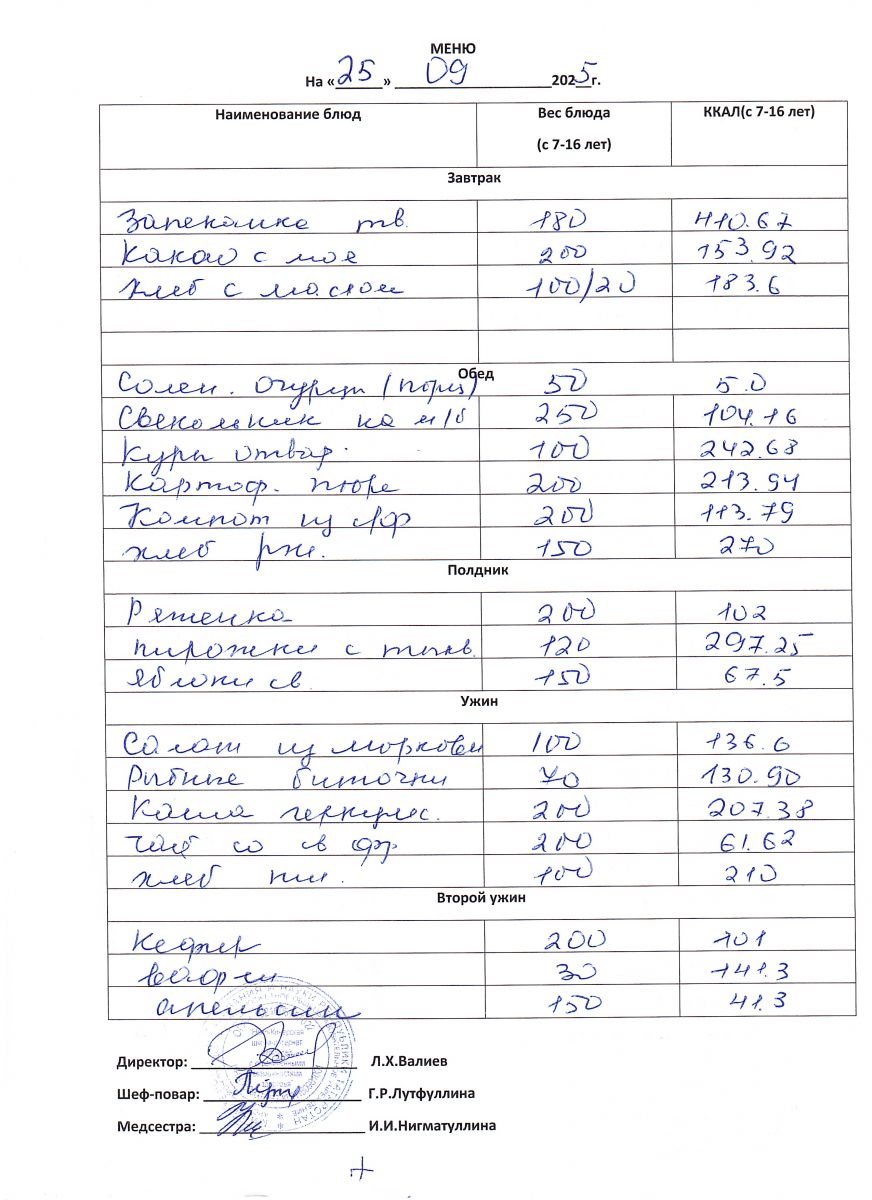 МЕНЮ
На «25» 09 2025г.
Наименование блюд Вес блюда (с 7-16 лет) ККАЛ(с 7-16 лет)
Завтрак
Запеканка тв. 180 410.67
Какао с мол 200 153.92
Хлеб с маслом 100/20 183.6
Обед
Солен. Огурцы (порц) 50 5.0
Свекольник на м/б 250 104.16
Куры отвар. 100 242.68
Картоф. пюре 200 213.94
Компот из с/ф 200 113.79
хлеб рж. 150 270
Полдник
Ряженка 200 102
пирожки с тыкв. 120 297.25
Яблоки св. 150 67.5
Ужин
Салат из моркови 100 136.6
Рыбные биточки 70 130.90
Каша геркулес. 200 207.38
Чай со св фр 200 61.62
хлеб пш. 100 210
Второй ужин
Кефир 200 101
вафли 30 141.3
апельсин 150 41.3
Директор: Л.Х.Валиев
Шеф-повар: Г.Р.Лутфуллина
Медсестра: И.И.Нигматуллина